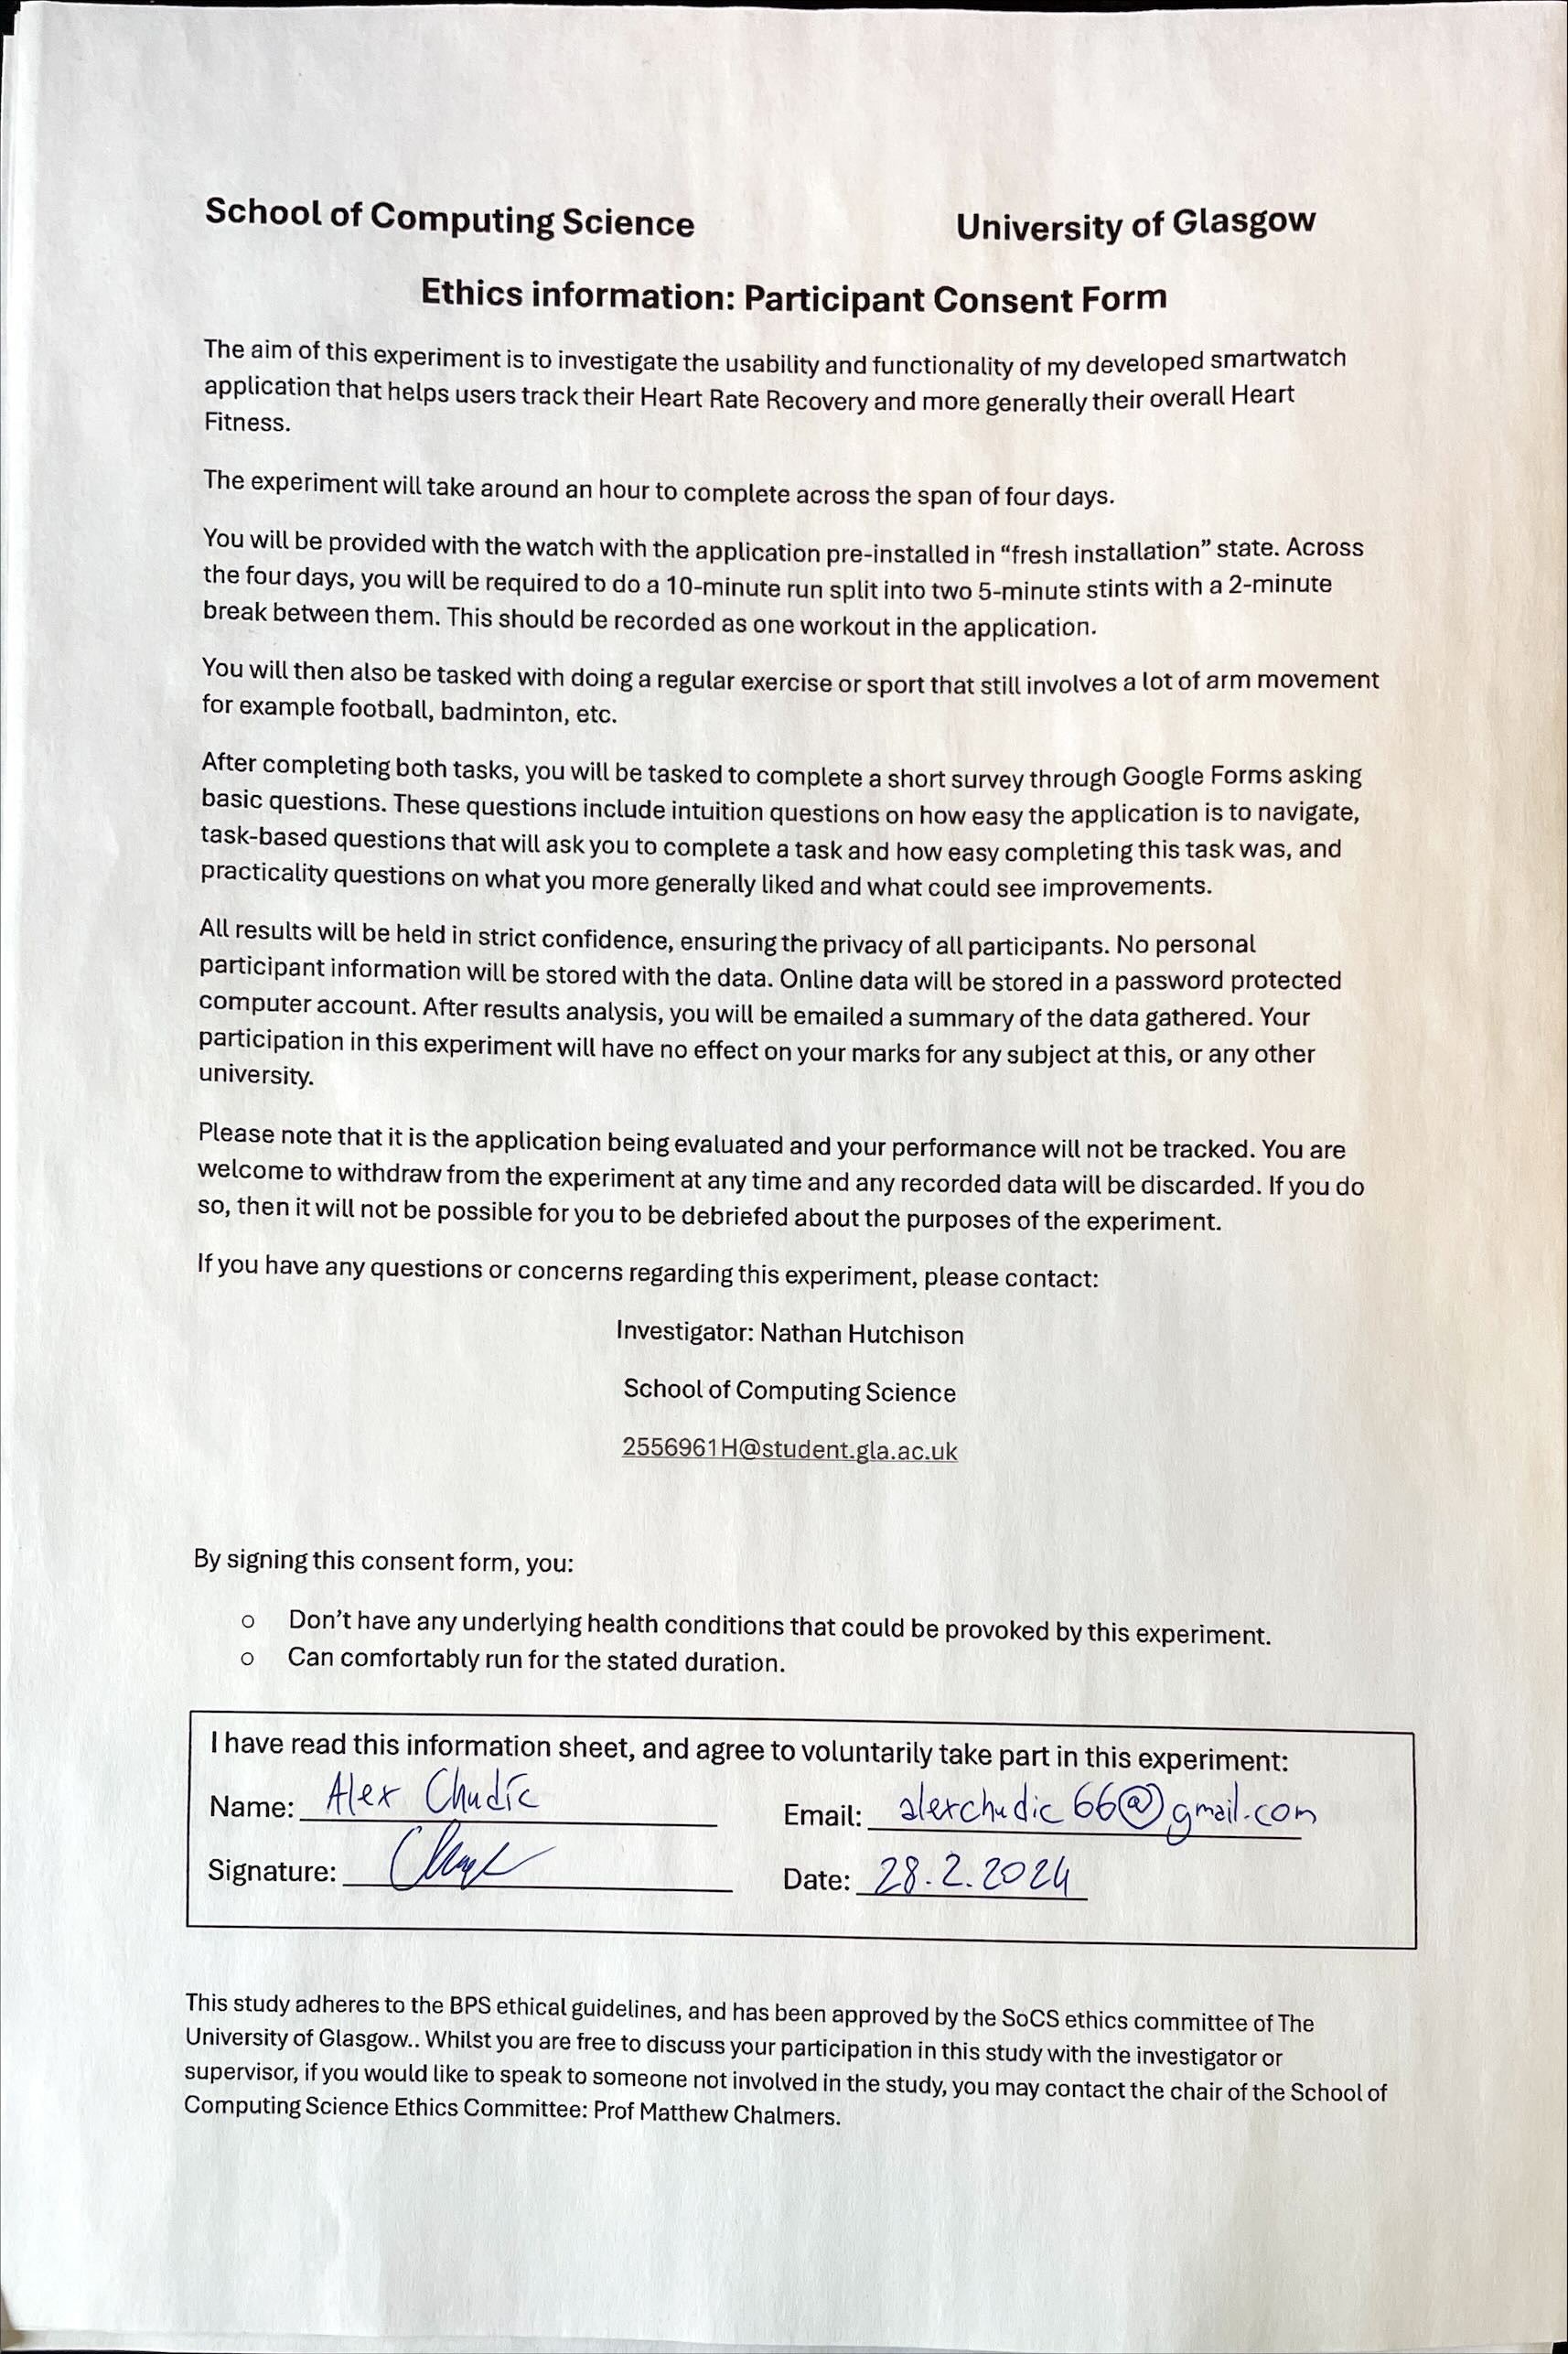 School of Computing Science University of Glasgow
Ethics information: Participant Consent Form
The aim of this experiment is to investigate the usability and functionality of my developed smartwatch
application that helps users track their Heart Rate Recovery and more generally their overall Heart
Fitness.
The experiment will take around an hour to complete across the span of four days.
You will be provided with the watch with the application pre-installed in “fresh installation” state. Across
the four days, you will be required to do a 10-minute run split into two 5-minute stints with a 2-minute
break between them. This should be recorded as one workout in the application.
You will then also be tasked with doing a regular exercise or sport that still involves a lot of arm movement
for example football, badminton, etc.
After completing both tasks, you will be tasked to complete a short survey through Google Forms asking
basic questions. These questions include intuition questions on how easy the application is to navigate,
task-based questions that will ask you to complete a task and how easy completing this task was, and
practicality questions on what you more generally liked and what could see improvements.
All results will be held in strict confidence, ensuring the privacy of all participants. No personal
participant information will be stored with the data. Online data will be stored in a password protected
computer account. After results analysis, you will be emailed a summary of the data gathered. Your
participation in this experiment will have no effect on your marks for any subject at this, or any other
university.
Please note that it is the application being evaluated and your performance will not be tracked. You are
welcome to withdraw from the experiment at any time and any recorded data will be discarded. If you do
so, then it will not be possible for you to be debriefed about the purposes of the experiment.
If you have any questions or concerns regarding this experiment, please contact:
Investigator: Nathan Hutchison
School of Computing Science
2556961H@student.gla.ac.uk
By signing this consent form, you:
o Don’t have any underlying health conditions that could be provoked by this experiment.
o Can comfortably run for the stated duration.
I have read this information sheet, and agree to voluntarily take part in this experiment:
Name: Alex Chudíc Email: alexchudic66@gmail.com
Signature: Date: 28.2.2024
This study adheres to the BPS ethical guidelines, and has been approved by the SoCS ethics committee of The
University of Glasgow.. Whilst you are free to discuss your participation in this study with the investigator or
supervisor, if you would like to speak to someone not involved in the study, you may contact the chair of the School of
Computing Science Ethics Committee: Prof Matthew Chalmers.